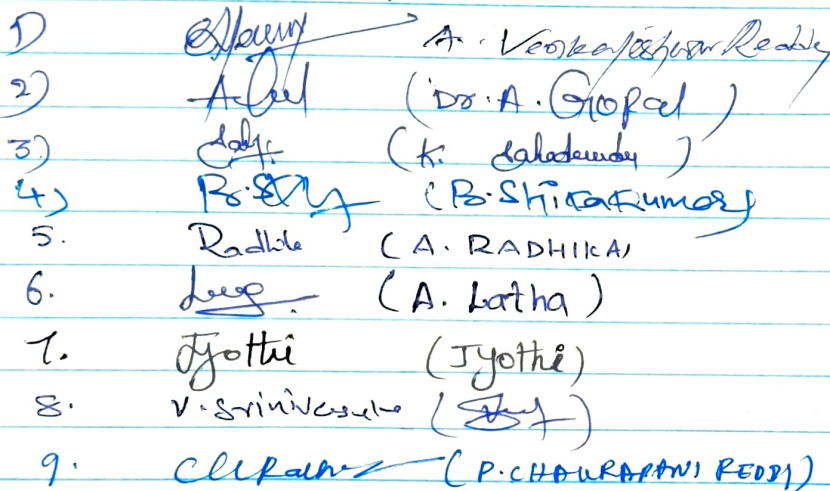 1) A. Venkateshwar Reddy
2) (Dr. A. Gopal)
3) (K. Sahadevudu)
4) (B. Shivakumar)
5. Radhika (A. RADHIKA)
6. (A. Latha)
7. Jyothi (Jyothi)
8. V. Srinivasulu
9. (P. CHAKRAPANI REDDY)